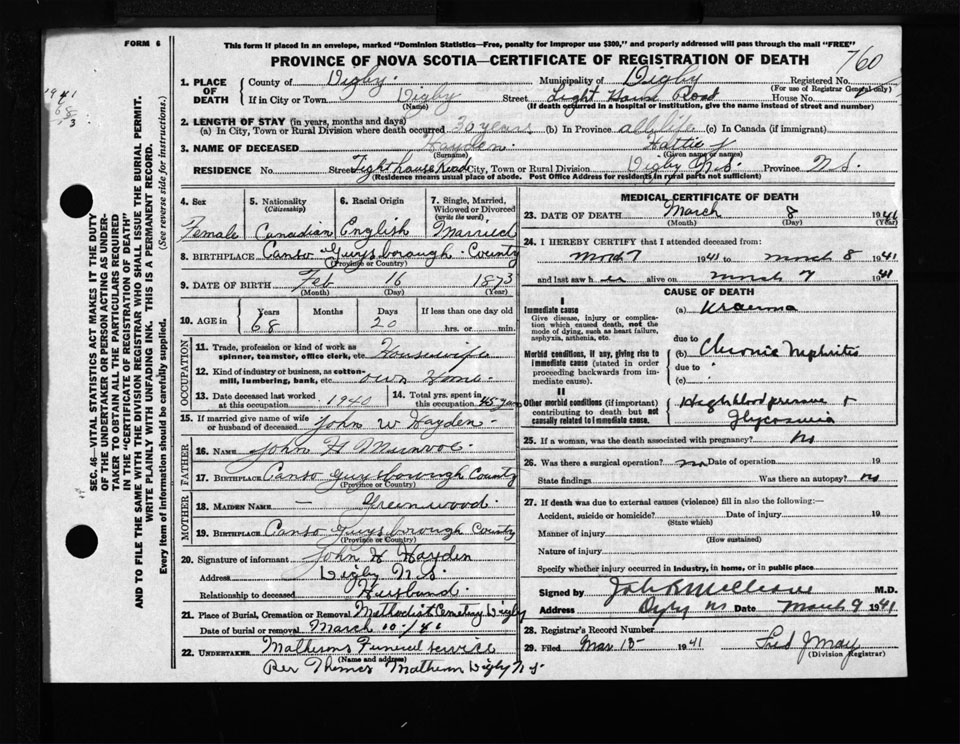 FORM 6
This form if placed in an envelope, marked "Dominion Statistics—Free, penalty for improper use $300," and properly addressed will pass through the mail "FREE"
PROVINCE OF NOVA SCOTIA—CERTIFICATE OF REGISTRATION OF DEATH
760
1. PLACE OF DEATH County of Digby. Municipality of Digby Registered No.
(For use of Registrar General only)
If in City or Town Digby Street Light House Road House No.
(Name) (If death occurred in a hospital or institution, give the name instead of street and number)
2. LENGTH OF STAY (in years, months and days)
(a) In City, Town or Rural Division where death occurred 30 years (b) In Province all life (c) In Canada (if immigrant)
3. NAME OF DECEASED Hayden. Hattie J
(Surname) (Given name or names)
RESIDENCE No. Street Lighthouse Road City, Town or Rural Division Digby N.S. Province N S
(Residence means usual place of abode. Post Office Address for residents in rural parts not sufficient)
4. Sex 5. Nationality (Citizenship) 6. Racial Origin 7. Single, Married, Widowed or Divorced (write the word)
Female Canadian English Married
8. BIRTHPLACE Canso Guysborough County
(Province or Country)
9. DATE OF BIRTH Feb 16 1873
(Month) (Day) (Year)
10. AGE in Years Months Days If less than one day old
68 20 hrs. or min.
OCCUPATION
11. Trade, profession or kind of work as spinner, teamster, office clerk, etc. Housewife
12. Kind of industry or business, as cotton-mill, lumbering, bank, etc. own Home
13. Date deceased last worked at this occupation 1940 14. Total yrs. spent in this occupation 45 years
15. If married give name of wife or husband of deceased John W Hayden
FATHER
16. NAME John H
17. BIRTHPLACE Canso Guysborough County
(Province or Country)
MOTHER
18. MAIDEN NAME — Greenwood
19. BIRTHPLACE Canso Guysborough County
(Province or Country)
20. Signature of informant John W Hayden
Address Digby N.S.
Relationship to deceased Husband.
21. Place of Burial, Cremation or Removal Methodist Cemetery Digby
Date of burial or removal March 10 - /41
22. UNDERTAKER Mathesons Funeral service
(Name and address)
Per Thomas Matheson Digby N S
MEDICAL CERTIFICATE OF DEATH
23. DATE OF DEATH March 8 1941
(Month) (Day) (Year)
24. I HEREBY CERTIFY that I attended deceased from:
March 7 1941 to March 8 1941
and last saw her alive on March 7 1941
CAUSE OF DEATH
I
Immediate cause (a) Uraemia
Give disease, injury or complication which caused death, not the mode of dying, such as heart failure, asphyxia, asthenia, etc.
due to
Morbid conditions, if any, giving rise to immediate cause (stated in order proceeding backwards from immediate cause). (b) Chronic Nephritis
due to
(c)
II
Other morbid conditions (if important) contributing to death but not causally related to immediate cause. High blood pressure + Glycosuria
25. If a woman, was the death associated with pregnancy? No
26. Was there a surgical operation? no Date of operation 19
State findings Was there an autopsy? no
27. If death was due to external causes (violence) fill in also the following:—
Accident, suicide or homicide? Date of injury 19
(State which)
Manner of injury
(How sustained)
Nature of injury
Specify whether injury occurred in industry, in home, or in public place
Signed by M.D.
Address Digby NS Date March 9 1941
28. Registrar's Record Number
29. Filed Mar. 15 - 1941 Fred J May
(Division Registrar)
SEC. 46—VITAL STATISTICS ACT MAKES IT THE DUTY
OF THE UNDERTAKER OR PERSON ACTING AS UNDER-
TAKER TO OBTAIN ALL THE PARTICULARS REQUIRED
IN THE "CERTIFICATE OF REGISTRATION OF DEATH"
AND TO FILE THE SAME WITH THE DIVISION REGISTRAR WHO SHALL ISSUE THE BURIAL PERMIT.
WRITE PLAINLY WITH UNFADING INK. THIS IS A PERMANENT RECORD.
Every item of information should be carefully supplied. (See reverse side for instructions.)